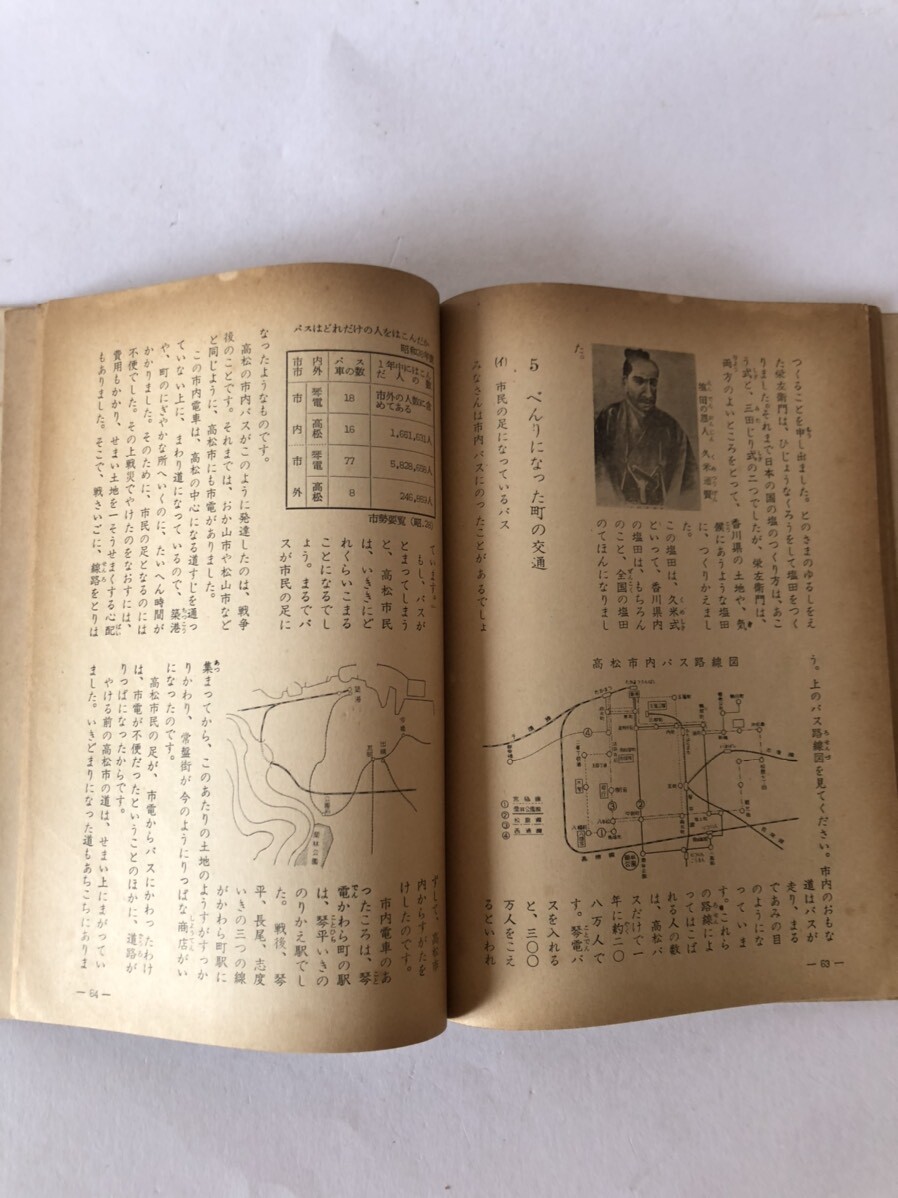 つくることを申し出ました。とのさまのゆるしをえ
た栄左衛門は、ひじょうなくろうをして塩田をつく
りました。それまで日本の国の塩のつくり方は、あこ
う式と、三田じり式の二つでしたが、栄左衛門は、
両方のよいところをとって、香川県の土地や、気
候にあうような塩田
に、つくりかえまし
た。
この塩田は、久米式
といって、香川県内
の塩田は、もちろん
のこと、全国の塩田
のてほんになりまし
た。
塩田の恩人 久米通賢
5 べんりになった町の交通
(イ) 市民の足になっているバス
みなさんは市内バスにのったことがあるでしょ
う。上のバス路線図を見てください。市内のおもな
道はバスが
走り、まる
であみの目
のようにな
っていま
す。これら
の路線によ
ってはこば
れる人の数
は、高松バ
スだけで一
年に約二〇
八万人で
す。琴電バ
スを入れる
と、三〇〇
万人をこえ
るといわれ
高松市内バス路線図
① ② ③ ④
— 63 —
ています。
もし、バスが
とまってしまう
と、高松市民
は、いきにど
れくらいこまる
ことになるでし
ょう。まるでバ
スが市民の足に
バスはどれだけの人をはこんだか
市内 市外 バス車の数 1年中にはこんだ人の数
市内 琴電 18 市外の人数に含めてある
高松 16 1,661,631人
市外 琴電 77 5,828,656人
高松 8 246,989人
市勢要覧(昭.26)
なったようなものです。
高松の市内バスがこのように発達したのは、戦争
後のことです。それまでは、おか山市や松山市など
と同じように、高松市にも市電がありました。
この市内電車は、高松の中心になる道すじを通っ
ていない上に、まわり道になっているので、築港
や、町のにぎやかな所へいくのに、たいへん時間が
かかりました。そのために、市民の足となるのには
不便でした。その上戦災でやけたのをなおすには、
費用もかかり、せまい土地を一そうせまくする心配
もありました。そこで、戦さいごに、線路をとりは
内からすがたを
けしたのです。
市内電車のあ
ったころは、琴
電かわら町の駅
は、琴平いきの
のりかえ駅でし
た。戦後、琴
平、長尾、志度
いきの三つの線
がかわら町駅に
集まってから、このあたりの土地のようすがすっか
りかわり、常盤街が今のようにりっぱな商店がい
になったのです。
高松市民の足が、市電からバスにかわったわけ
は、市電が不便だったということのほかに、道路が
りっぱになったからです。
やける前の高松市の道は、せまい上にまがってい
ました。いきどまりになった道もあちこちにありま
— 64 —